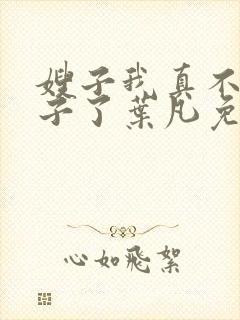 嫂子我真不
子了葉凡免
心如飛絮